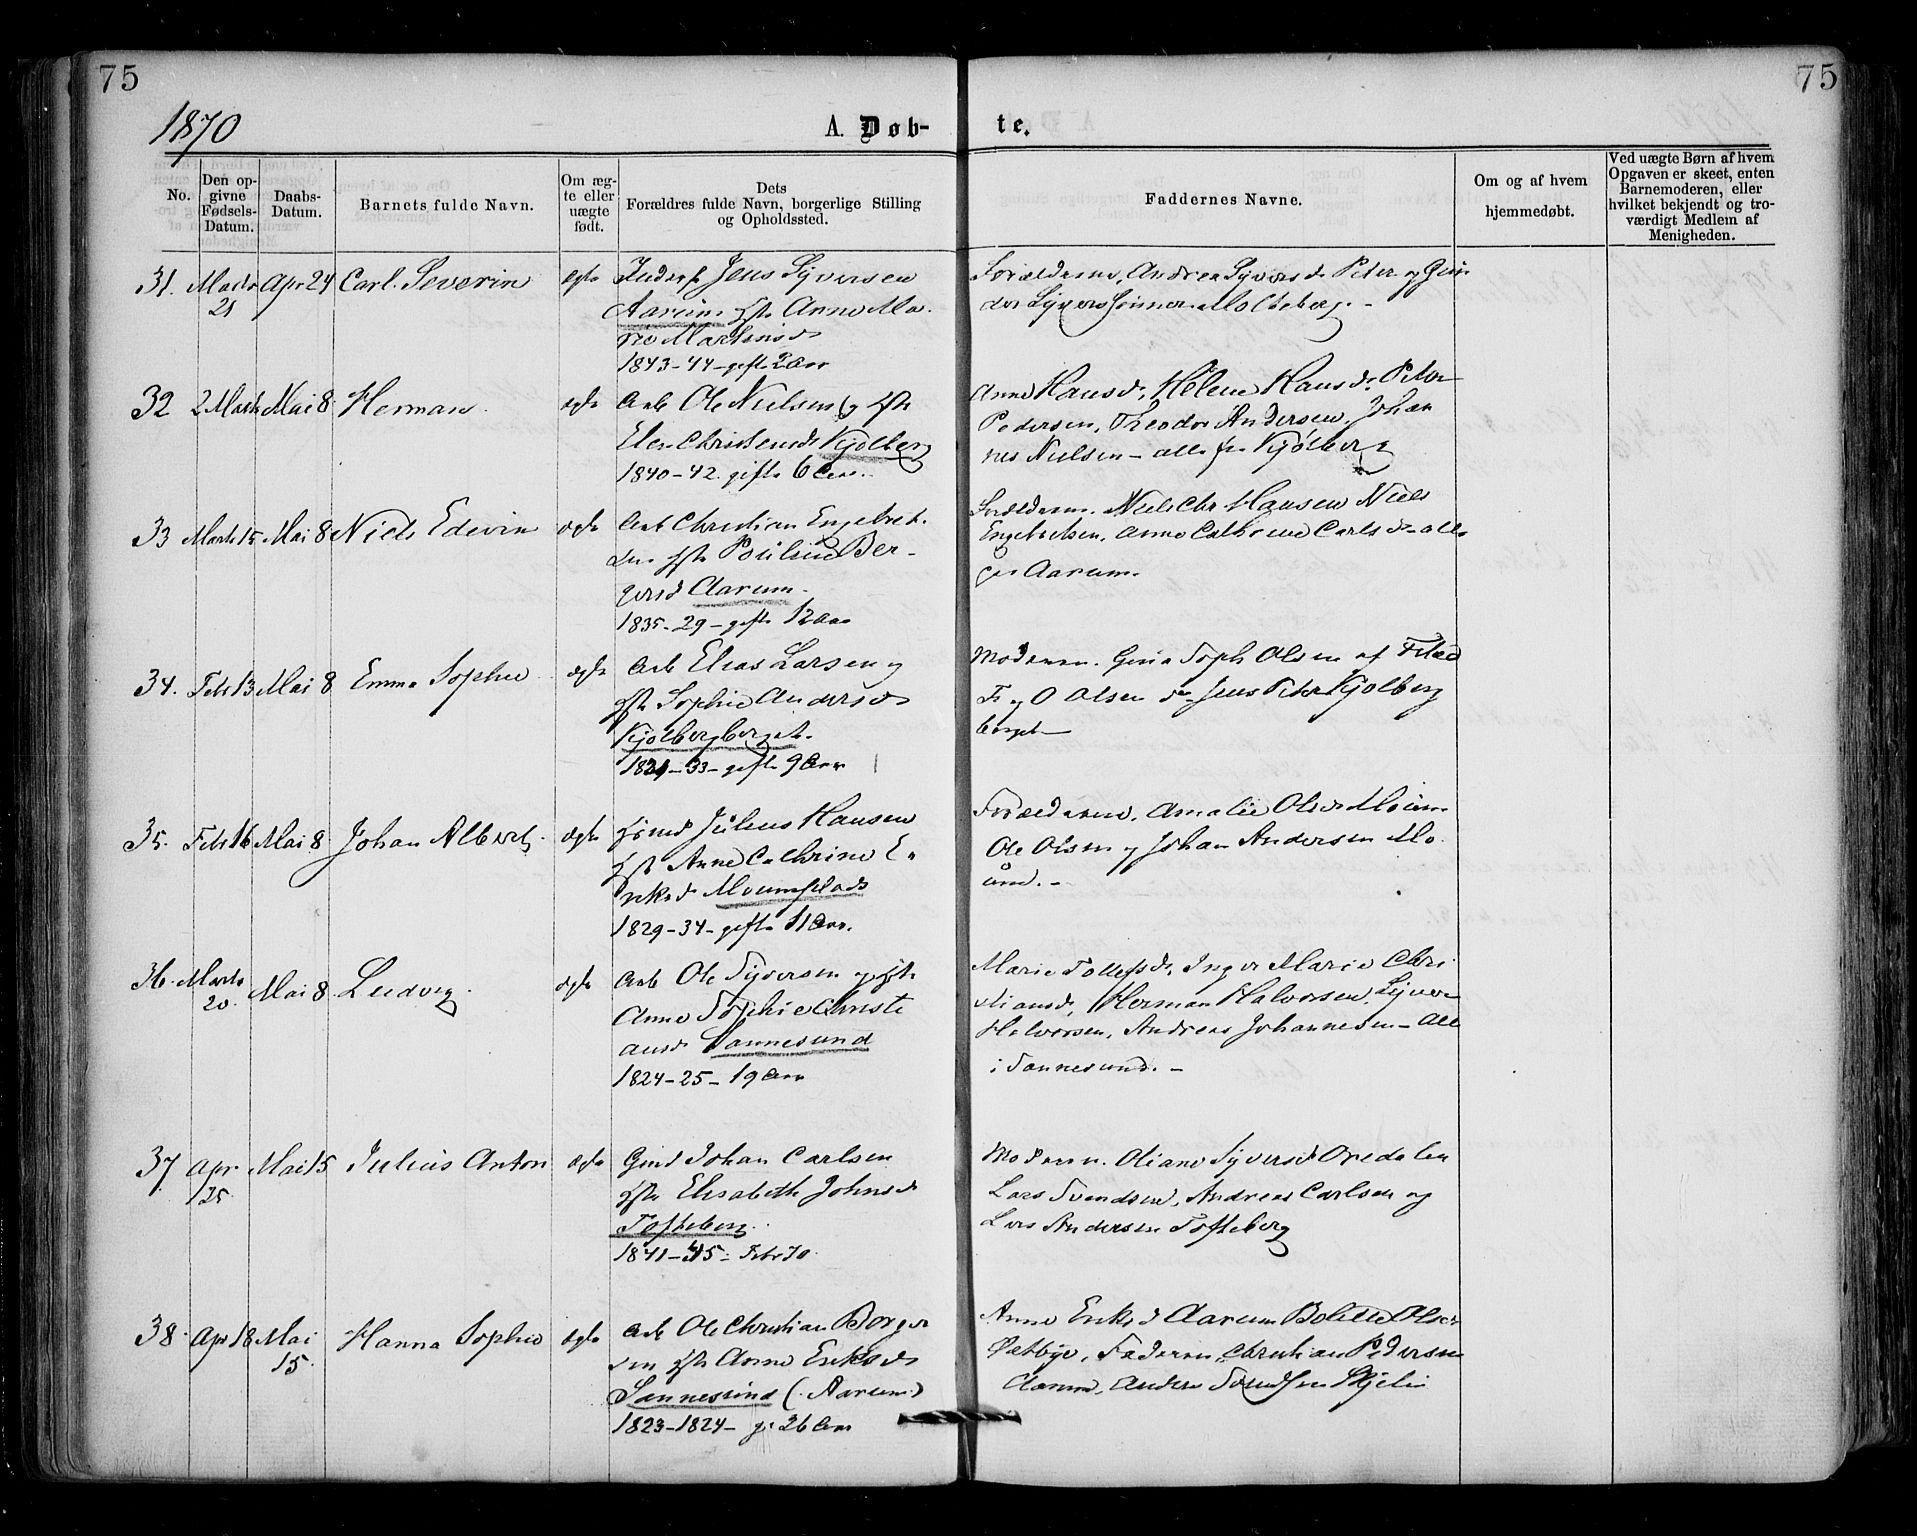 75
75
1870
A. Døb-
te.
No.
Den op-
givne
Fødsels-
Datum.
Daabs-
Datum.
Barnets fulde Navn.
Om æg-
te eller
uægte
født.
Dets
Forældres fulde Navn, borgerlige Stilling
og Opholdssted.
Faddernes Navne.
Om og af hvem
hjemmedøbt.
Ved uægte Børn af hvem
Opgaven er skeet, enten
Barnemoderen, eller
hvilket bekjendt og tro-
værdigt Medlem af
Menigheden.
31. Marts Apr 24 Carl Severin ægte Jens Syversen
21
Aarum Hst Anne Ma-
Martinsd
1843-44-gifte 2 Aar
Forældrene, Andrea Syversd Peter og
Syvers Sønner
32 2 Marts Mai 8 Herman ægte Arb Ole Nielsen og Hst
Christensd Kjølberg
1840-42. gifte 6 Aar.
Anne Hansd, Helene Hansd Peter
Pedersen, Theodor Andersen, Johan
nes Nielsen - alle fra Kjølberg
33 Marts 15 Mai 8 Niels Edevin ægte Arb Christian Engebret-
sen Hst Pouline Ber-
gersd Aarum.
1835-29-gifte 12 Aar
Forældrene. Niels Chr Hansen Niels
Engebretsen, Anne Cathrine Carlsd - alle
Aarum.
34. Febr 13 Mai 8 Emma Sophie ægte Arb Elias Larsen og
Hst Sophie Andersd
Kjølbergberget.
-33-gifte 9 Aar
Moderen. Gina Soph Olsen af
F og O Olsen Jens Peter Kjølberg
berget
35. Febr 16 Mai 8 Johan Albert ægte Julius Hansen
Hst Anne Cathrine E-
riksd Moumplads
1829-34-gifte 11 Aar.
Forældrene, Amalie Olsd Moum
Ole Olsen og Johan Andersen Mo-
um.
36. Marts Mai 8 Ludvig ægte Arb Ole Syversen og Hst
20.
Anne Sophie Christi
ansd Sannesund
1824-25-19 Aar
Marie Tollefsd, Inger Marie Chri-
stiansd, Herman Halvorsen, Syver
Halvorsen, Andreas Johannesen - All
i Sannesund.
37 Apr Mai 15 Julius Anton ægte Gmd Johan Carlsen
25.
Hst Elisabeth Johnsd
Tofteberg
1841-45- Febr 70.
Moderen. Oliane Syversd Opedalen
Lars Svendsen, Andreas Carlsen og
Lars Andersen Tofteberg
38. Apr 18 Mai Hanna Sophie ægte Arb Ole Christian Borger
15.
sen Hst Anne Eriksd
Sannesund (Aarum)
1823-1824- g. 26 Aar
Anne Eriksd Aarum Bolette Olsen
Faderen, Christian Pedersen
Aarum, Anders Svendsen